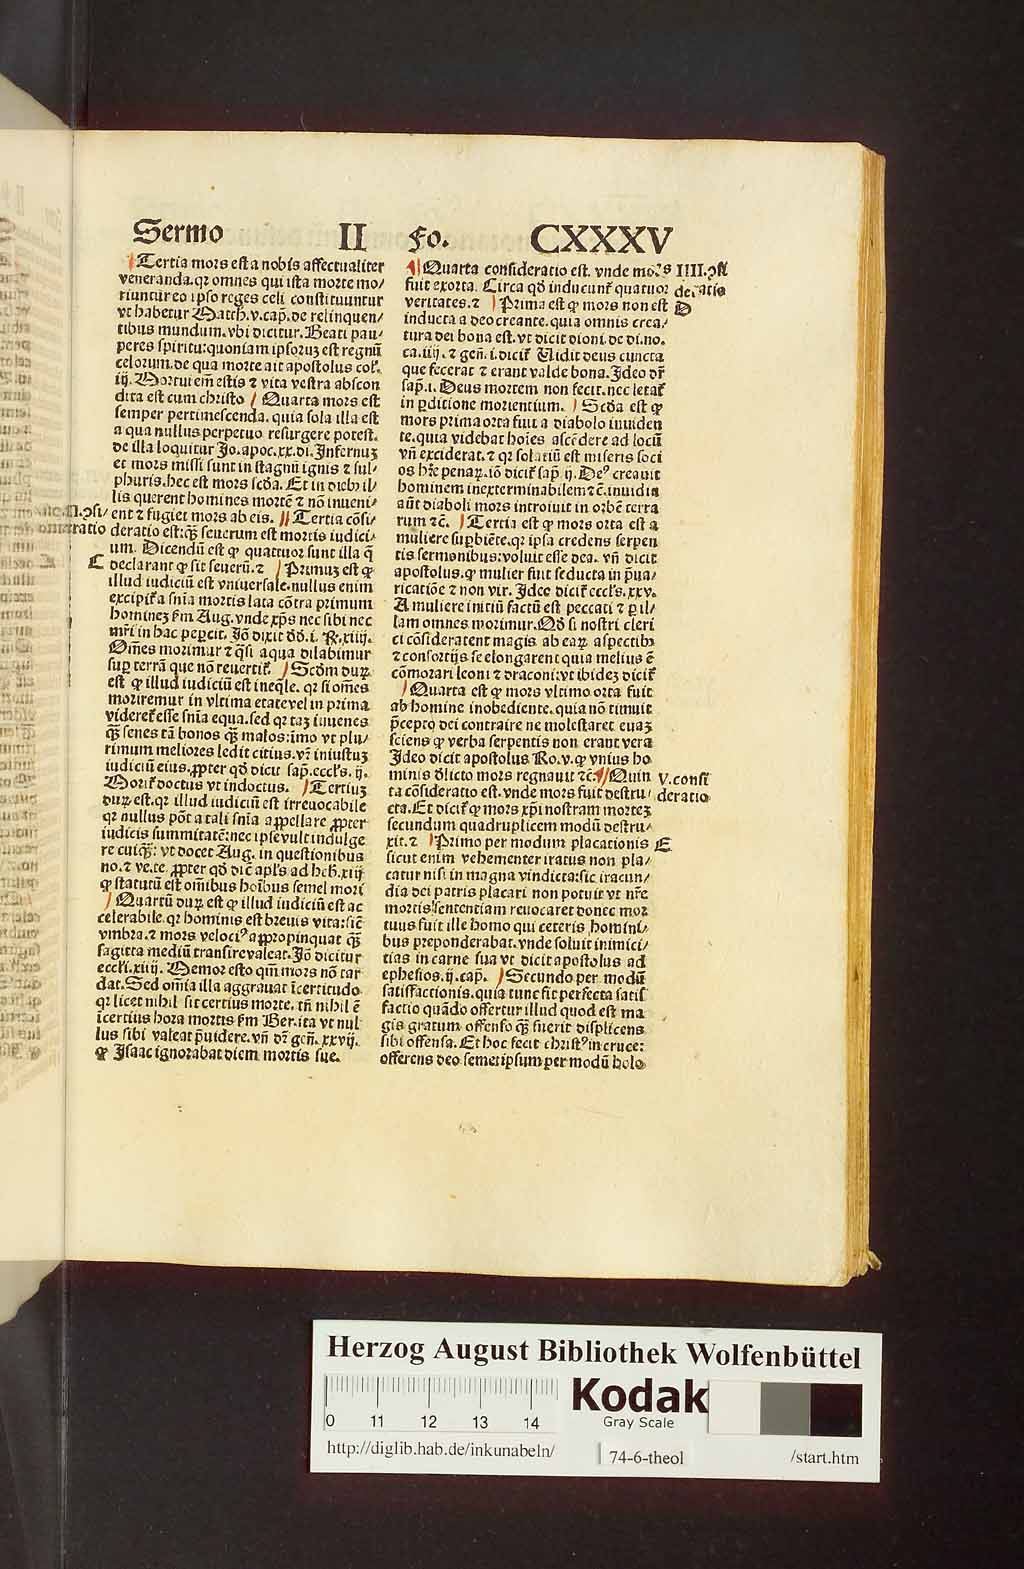 Sermo II Fo. CXXXV
Tertia mors est a nobis affectualiter
veneranda. qꝛ omnes qui ista morte mo/
riuntur eo ipso reges celi constituuntur
vt habetur Matth. v. cap. de relinquen/
tibus mundum. vbi dicitur. Beati pau/
peres spiritu: quoniam ipsoruꝫ est regnū
celorum. de qua morte ait apostolus col̛.
iij. Mortui em̄ estis ⁊ vita vestra abscon
dita est cum christo / Quarta mors est
semper pertimescenda. quia sola illa est
a qua nullus perpetuo resurgere potest.
de illa loquitur Jo. apoc. xx. di. Infernuꝫ
et mors missi sunt in stagnū ignis ⁊ sul/
phuris. hec est mors scd̄a. Et in diebꝰ il/
lis querent homines mortē ⁊ nō inueni/
ent ⁊ fugiet mors ab eis. // Tertia cōsi/
deratio est: qꝫ seuerum est mortis iudici/
um. Dicendū est ꝙ quattuor sunt illa q̄
declarant ꝙ sit seuerū. ⁊ / Primuꝫ est ꝙ
illud iudiciū est vniuersale. nullus enim
excipit̛ a snīa mortis lata cōtra primum
hominez fm̄ Aug. vnde xp̄s nec sibi nec
mr̄i in hac pepercit. Jō dixit dd̄. i. R. xiiij.
Om̄es morimur ⁊ q̄si aqua dilabimur
suꝑ terrā que nō reuertit̛. / Scd̄m duꝝ
est ꝙ illud iudiciū est ineq̄le. qꝛ si om̄es
moriremur in vltima etate vel in prima
videret̛ esse snīa equa. sed qꝛ taꝫ iuuenes
qꝫ senes tā bonos qꝫ malos: īmo vt plu/
rimum meliores ledit citius. vꝫ iniustuꝫ
iudiciū eius. ꝓpter qd̄ dicit sap̄. eccl̛s. ij.
Morit̛ doctus vt indoctus. / Tertiuꝫ
duꝝ est. qꝛ illud iudiciū est irreuocabile
qꝛ nullus pōt a tali snīa appellare ꝓpter
iudicis summitatē: nec ipse vult indulge
re cuiqꝫ: vt docet Aug. in questionibus
no. ⁊ ve. te. ꝓpter qd̄ dic̄ apl̄s ad heb. xiij
ꝙ statutū est om̄ibus hoībus semel mori
/ Quartū duꝝ est ꝙ illud iudiciū est ac
celerabile. qꝛ hominis est breuis vita: sic̄
vmbra. ⁊ mors velociꝰ appropinquat qꝫ
sagitta mediū transire valeat. Jō dicitur
eccl̛i. xiiij. Memor esto qm̄ mors nō tar
dat. Sed om̄ia illa aggrauat īcertitudo
qꝛ licet nihil sit certius morte. tn̄ nihil ē
īcertius hora mortis fm̄ Ber. ita vt nul
lus sibi valeat p̄uidere. vn̄ dr̄ gen̄. xxvij.
ꝙ Isaac ignorabat diem mortis sue.
III. ɔsi
deratio
C
Quarta consideratio est. vnde mors
fuit exorta. Circa qd̄ inducunt̛ quatuor
veritates. ⁊ / Prima est ꝙ mors non est
inducta a deo creante. quia omnis crea/
tura dei bona est. vt dicit dioni. de di. no.
ca. iiij. ⁊ gen̄. i. dicit̛ Uidit deus cuncta
que fecerat ⁊ erant valde bona. Ideo dr̄
sap̄. i. Deus mortem non fecit. nec letat̛
in ꝑditione morientium. / Scd̄a est ꝙ
mors prima orta fuit a diabolo inuiden
te. quia videbat hoīes ascēdere ad locū
vn̄ exciderat. ⁊ qꝛ solatiū est miseris soci
os hr̄e penaꝝ. iō dicit̛ sap̄ ij. Deꝰ creauit
hominem inexterminabilem ⁊c̄. inuidia
aūt diaboli mors introiuit in orbē terra
rum ⁊c̄. / Tertia est ꝙ mors orta est a
muliere suꝑbiēte. qꝛ ipsa credens serpen
tis sermonibus: voluit esse dea. vn̄ dicit
apostolus. ꝙ mulier fuit seducta in p̄ua/
ricatiōe ⁊ non vir. Ideo dicit̛ eccl̛s. xxv.
A muliere initiū factū est peccati ⁊ ꝑ il/
lam omnes morimur. Qd̄ si nostri cleri
ci cōsiderarent magis ab eaꝝ aspectibꝰ
⁊ consortijs se elongarent quia melius ē
cōmorari leoni ⁊ draconi: vt ibideꝫ dicit̛
/ Quarta est ꝙ mors vltimo orta fuit
ab homine inobediente. quia nō timuit
p̄cepto dei contraire ne molestaret euaꝫ
sciens ꝙ verba serpentis non erant vera
Ideo dicit apostolus Ro. v. ꝙ vnius ho
minis d̓licto mors regnauit ⁊c̄. Quin
ta cōsideratio est. vnde mors fuit destru/
cta. Et dicit̛ ꝙ mors xp̄i nostram morteꝫ
secundum quadruplicem modū destru/
xit. ⁊ / Primo per modum placationis
sicut enim vehementer iratus non pla/
catur nisi in magna vindicta: sic iracun/
dia dei patris placari non potuit vt nr̄e
mortis sententiam reuocaret donec mor
tuus fuit ille homo qui ceteris homini/
bus preponderabat. vnde soluit inimici/
tias in carne sua vt dicit apostolus ad
ephesios. ij. cap̄. / Secundo per modū
satisfactionis. quia tunc fit perfecta satis
factio quādo offertur illud quod est ma
gis gratum offenso qꝫ fuerit displicens
sibi offensa. Et hoc fecit christꝰ in cruce:
offerens deo semetipsum per modū holo
IIII. ɔsi
deratio
D
V. consi
deratio
E
Herzog August Bibliothek Wolfenbüttel
0 11 12 13 14
Kodak
Gray Scale
http://diglib.hab.de/inkunabeln/ 74-6-theol /start.htm